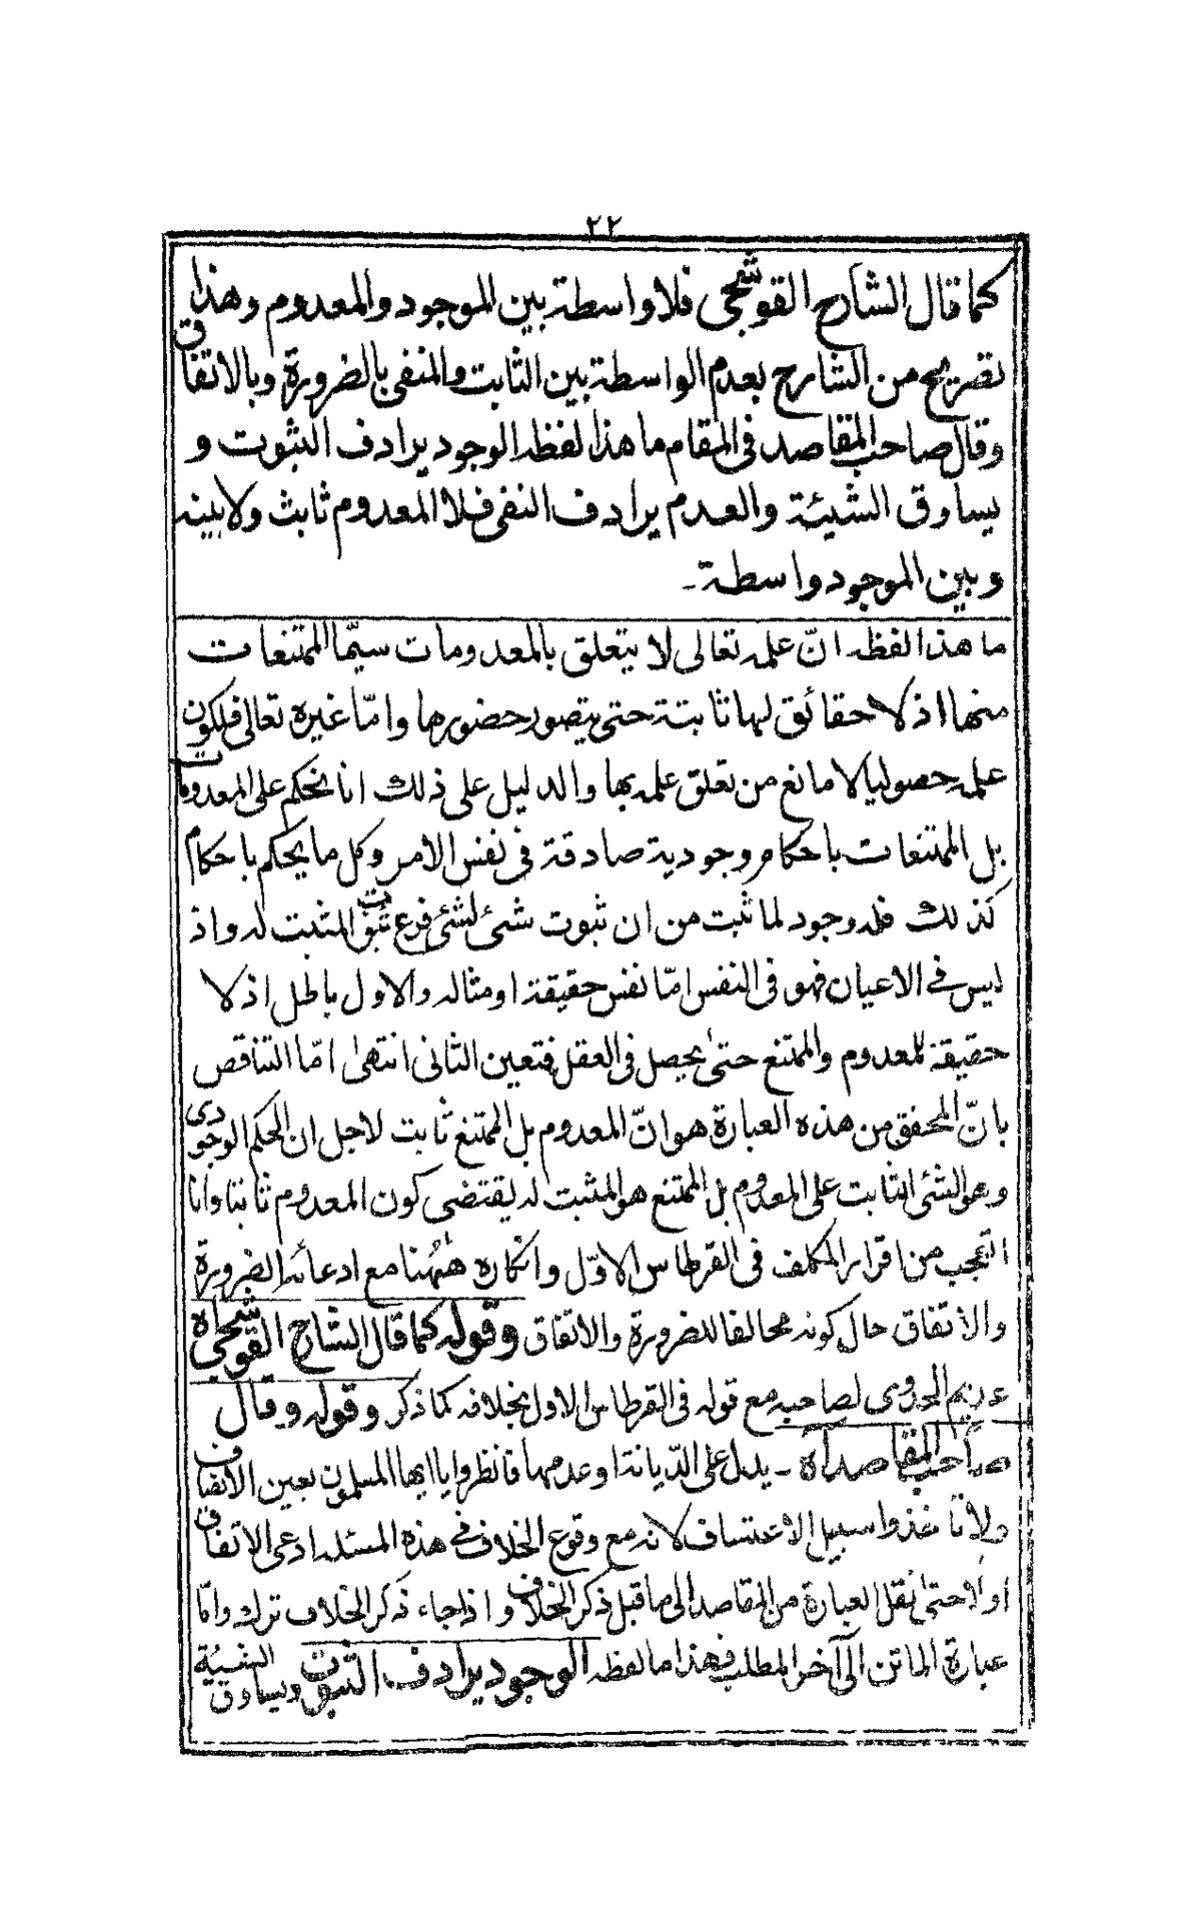 ٢٢
كما قال الشارح القوشجى فلا واسطة بين الموجود والمعدوم وهذا
تصريح من الشارح بعدم الواسطة بين الثابت والمنفى بالضرورة وبالاتفاق
وقال صاحب المقاصد فى المقام ما هذا لفظه الوجود يرادف الثبوت و
يساوق الشيئة والعدم يرادف النفى فلا المعدوم ثابث ولا بينه
وبين الموجود واسطة ـ
ما هذا لفظه انّ علمه تعالى لا يتعلق بالمعدومات سيّما الممتنعات
منها اذ لا حقائق لها ثابتة حتى يتصور حضورها وامّا غيره تعالى فلكون
علمه حصوليا لا مانع من تعلق علمه بها والدليل على ذلك انا نحكم على المعدومات
بل الممتنعات باحكام وجودية صادقة فى نفس الامر وكل ما يحكم باحكام
كذلك فله وجود لما ثبت من ان ثبوت شئ لشئ فرع ثبوت المثبت له واذ
ليس فى الاعيان فهو فى النفس امّا نفس حقيقة او مثاله والاول باطل اذ لا
حقيقة للمعدوم والممتنع حتى يحصل فى العقل فتعين الثانى انتهى امّا التناقص
بانّ المحفق من هذه العبارة هو انّ المعدوم بل الممتنع ثابت لاجل ان الحكم الوجودى
وهو الشئ الثابت على المعدوم بل الممتنع هو المثبت له يقتضى كون المعدوم ثابتا وانا
اتعجب من اقرار المكلف فى القرطاس الاوّل وانكاره ههنا مع ادعائه الضرورة
والاتفاق حال كونه مخالفا للضرورة والاتفاق وقوله كما قال الشارح القوشجى اه
عديم الجدوى لصاحبه مع قوله فى القرطاس الاول بخلافه كما ذكر وقوله وقال
صاحب المقاصد اه ـ يدل على الدّيانة او عدمها فانظروا يا ايها المسلمون بعين الانصاف
ولا تاخذوا سبيل الاعتساف لانه مع وقوع الخلاف فى هذه المسئله ادعى الاتفاق
اولا حتى نقل العبارة من المقاصد الى ما قبل ذكر الخلاف و اذا جاء ذكر الخلاف ترك وامّا
عبارة الماتن الى آخر المطلب فهذا ما لفظه الوجود يرادف الثبوت ويساوق الشيئية